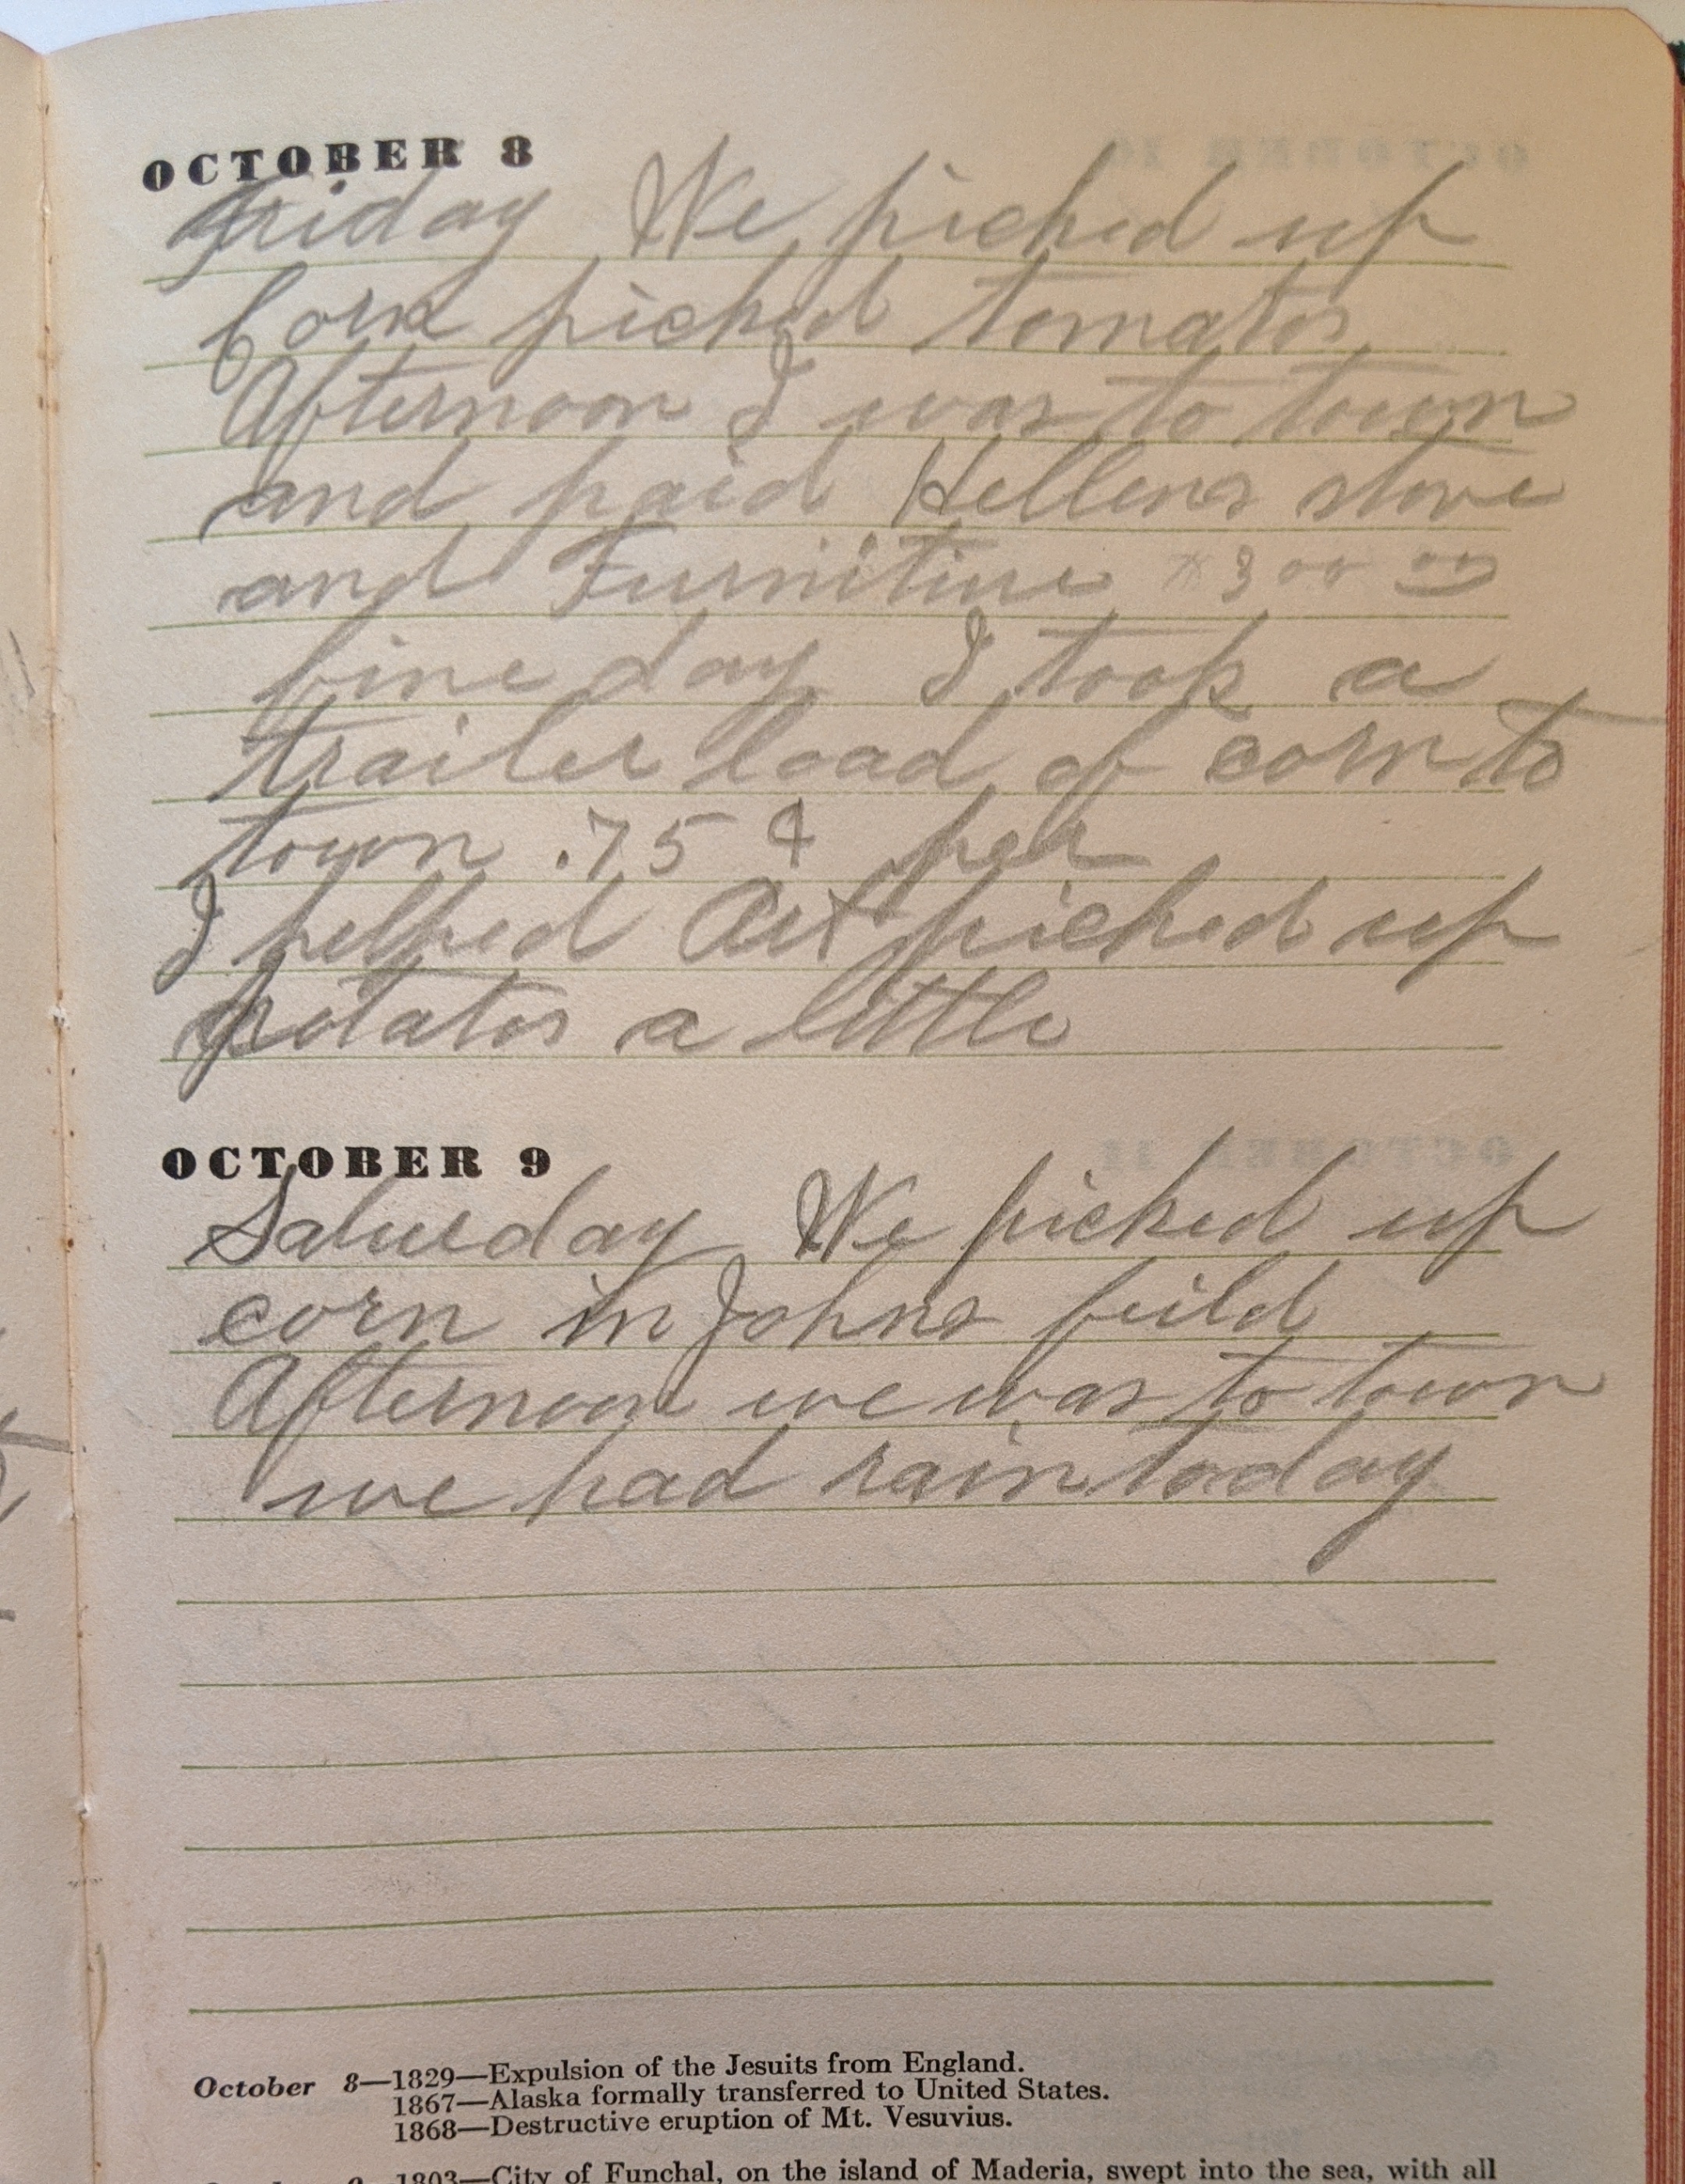 OCTOBER 8
Friday We picked up
Corn picked tomatos
Afternoon I was to town
and paid Hellens stove
and Furniture $300 00
fine day I took a
trailer load of corn to
town .75 ¢ per
I helped Art picked up
potatos a little
OCTOBER 9
Saturday We picked up
corn in Johns feild
Afternoon we was to town
we had rain today
October 8—1829—Expulsion of the Jesuits from England.
1867—Alaska formally transferred to United States.
1868—Destructive eruption of Mt. Vesuvius.
1803—City of Funchal, on the island of Maderia, swept into the sea, with all